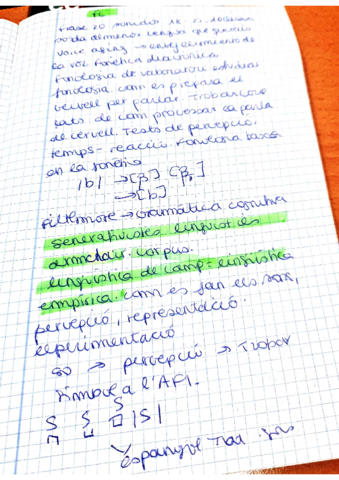 FL
frase 20 sonidos
de menos lengua que
voice aging → envejecimiento de
la voz fonética diacrónica
Fonologia de laboratori estudiar
fonologia com es prepara el
cervell per parlar. Trobar
de com processar la parla
de cervell. Tests de percepció,
temps - reacció. Fonologia basada
en la fonètica
|b| → [β] [β̞]
→ [b]
Fillmore → Gramática cognitiva
generativistes lingüistes
armchair. corpus.
lingüística de camp = lingüística
empírica. com es fan els sons,
percepció, representació
experimentació
so → percepció → Trobar
símbol a l'AFI.
S S S |S|
Espanyol